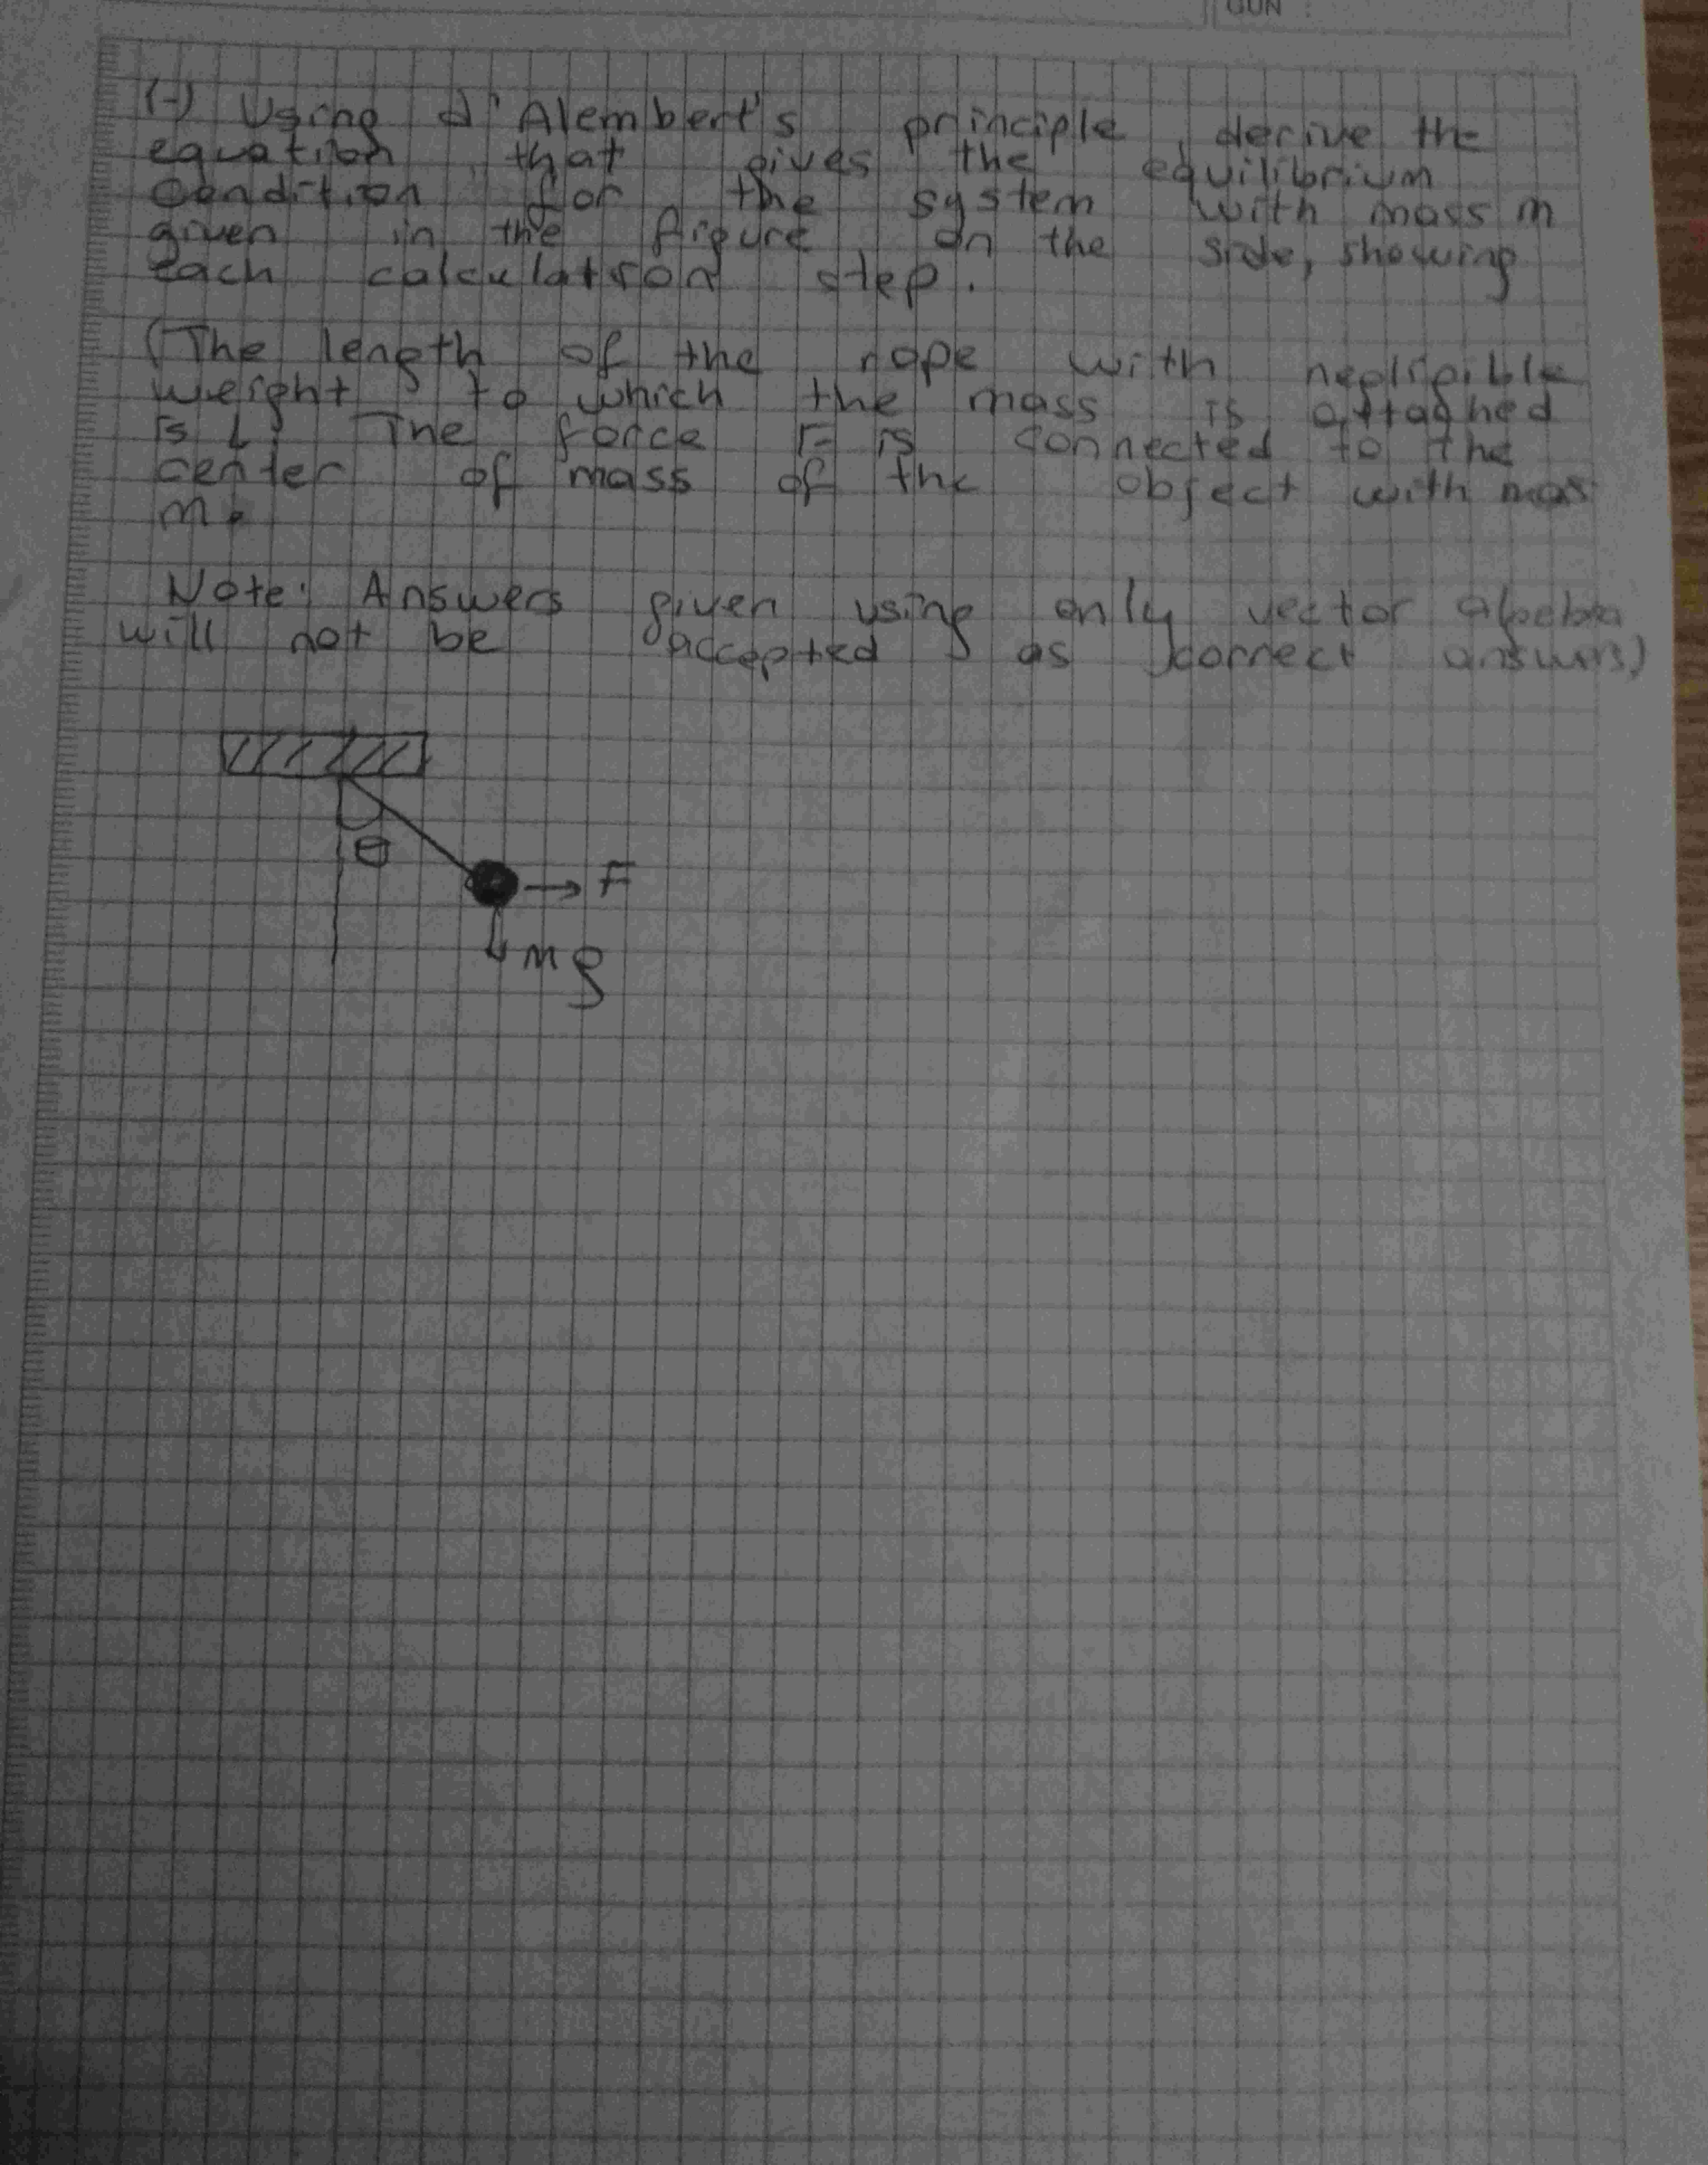 GÜN :
(-) Using d'Alembert's principle, derive the
equation that gives the equilibrium
condition for the system with mass m
given in the figure on the side, showing
each calculation step.
(The length of the rope with negligible
weight to which the mass is attached
is L. The force F is connected to the
center of mass of the object with mas
m.
Note: Answers given using only vector algebra
will not be accepted as correct answers)
θ
F
mg